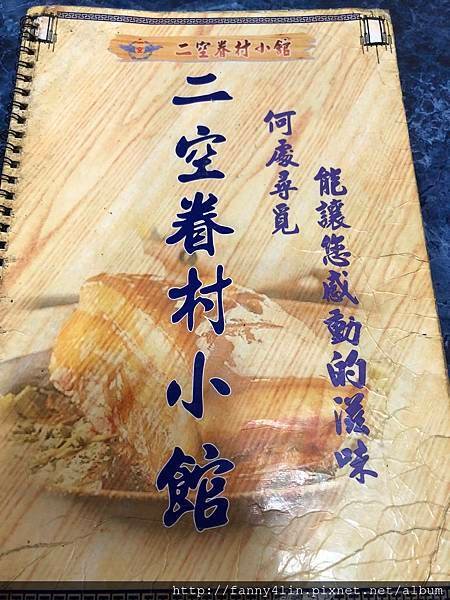 二空眷村小館
何處尋覓
能讓您感動的滋味
二空眷村小館
http://fanny4lin.pixnet.net/album